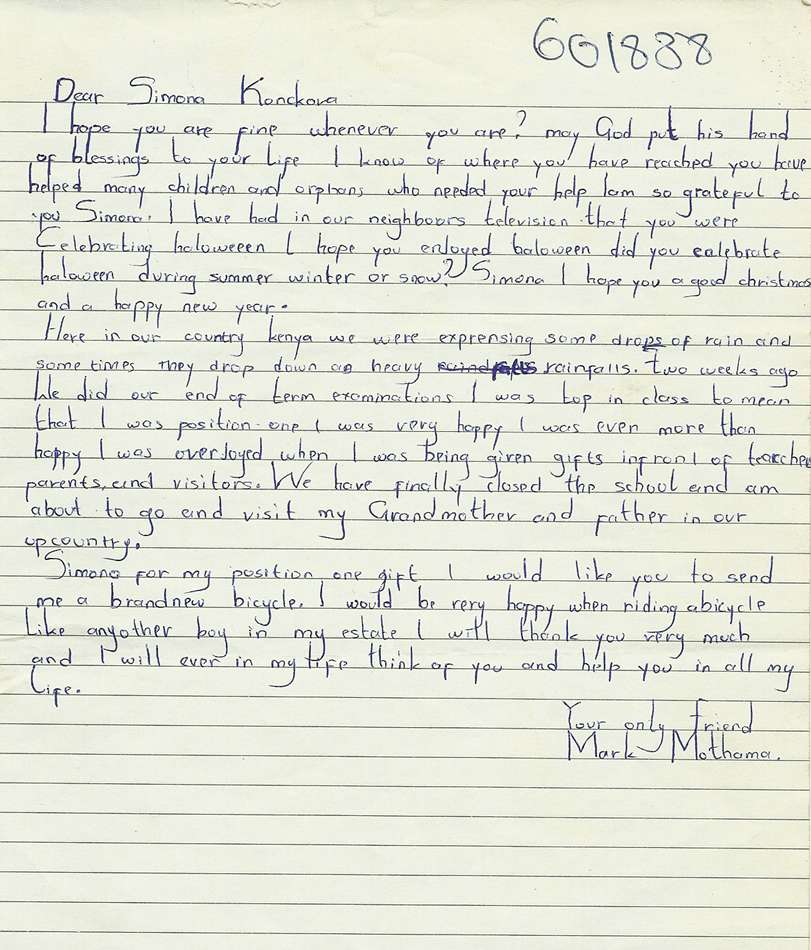 601838
Dear Simona Konckova
I hope you are fine whenever you are? may God put his hand
of blessings to your life I know of where you have reached you have
helped many children and orphans who needed your help Iam so grateful to
you Simona. I have had in our neighbours television that you were
Celebrating haloweeen I hope you enjoyed haloween did you ealebrate
haloween during summer winter or snow? Simona I hope you a good christmas
and a happy new year.
Here in our country kenya we were exprensing some drops of rain and
some times they drop down as heavy rainfalls. Two weeks ago
We did our end of term examinations I was top in class to mean
that I was position one I was very happy I was even more than
happy I was overjoyed when I was being given gifts infront of teacher
parents, and visitors. We have finally closed the school and am
about to go and visit my Grandmother and father in our
upcountry.
Simona for my position one gift I would like you to send
me a brandnew bicycle. I would be very happy when riding abicycle
like anyother boy in my estate I will thank you very much
and I will ever in my life think of you and help you in all my
life.
Your only friend
Mark Mothama.